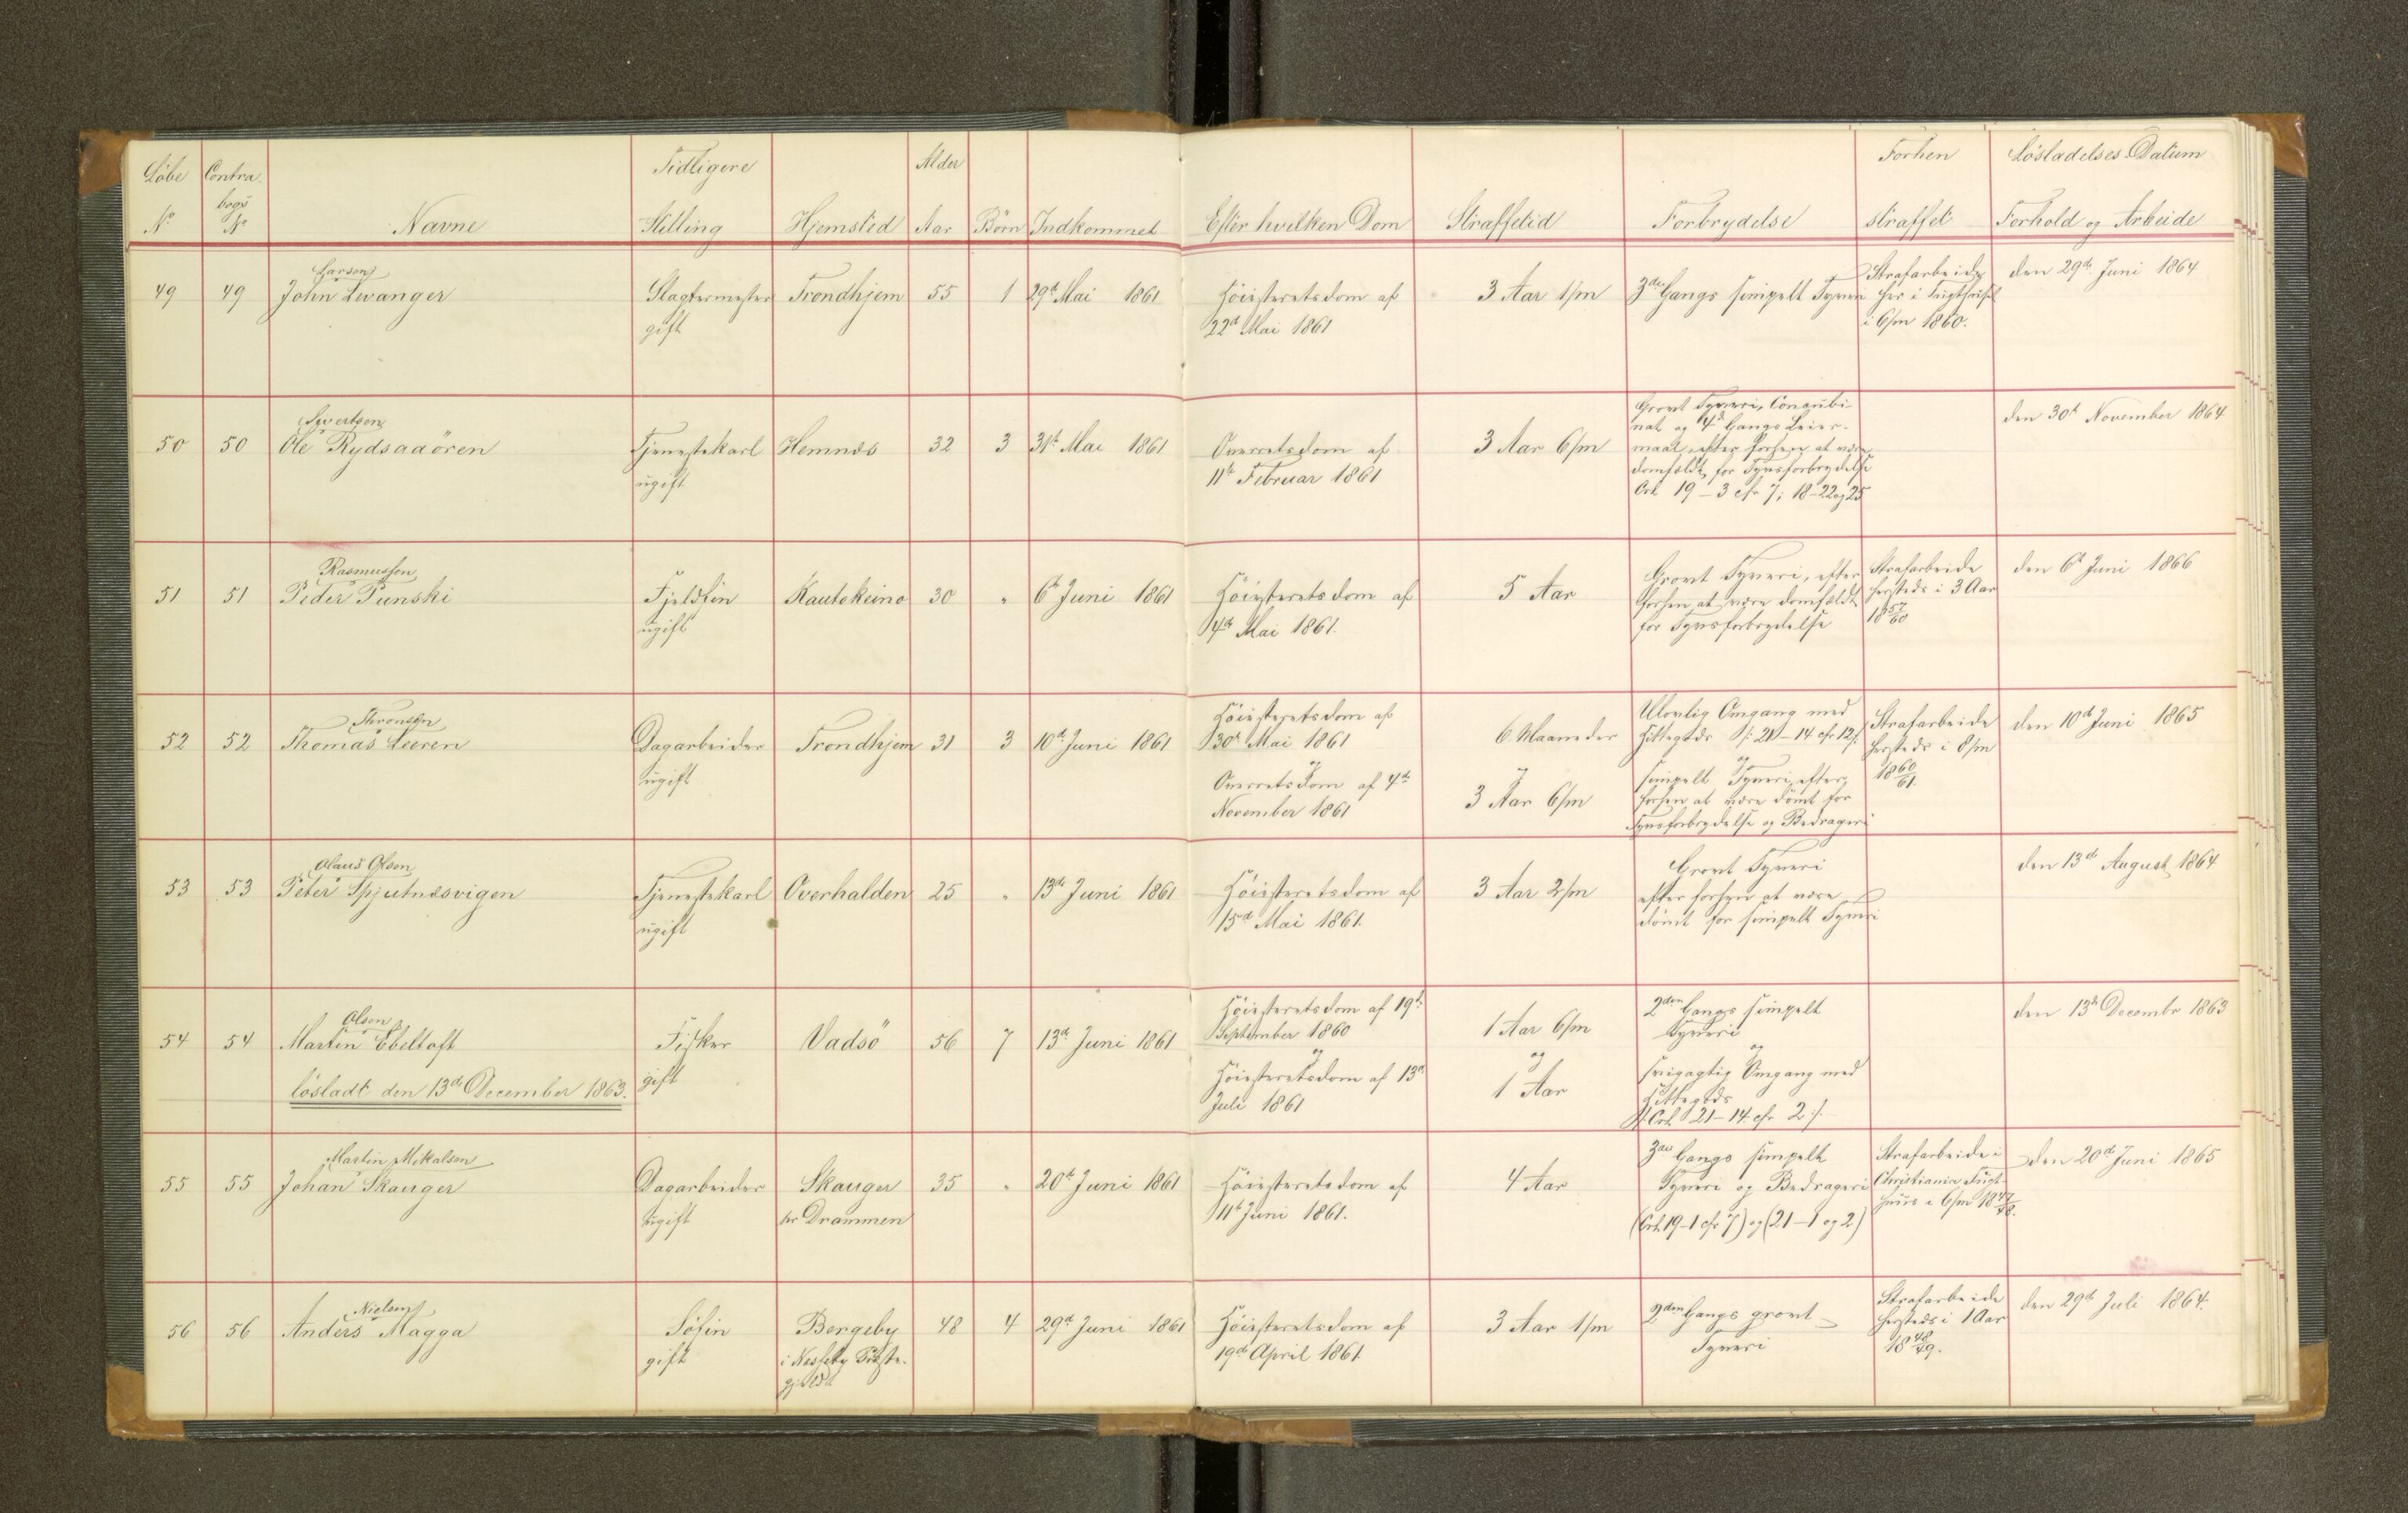 Löbe Contra Tidligere Alder Forhen Lösladelses Datum
bogs
No No Navne Stilling Hjemsted Aar Börn Indkommet Efter hvilken Dom Straffetid Forbrydelse straffet Forhold og Arbeide
Larsen
49 49 John Levanger Slagtermester Trondhjem 55 1 29de Mai 1861 Höiesteretsdom af 3 Aar 1/m 3die Gangs simpelt Tyveri Strafarbeide den 29de Juni 1864
gift 22de Mai 1861 her i Tugthuset
i 6/m 1860.
Sivertsen
50 50 Ole Rydsaaören Tjenestekarl Hemnæs 32 3 31te Mai 1861 Overretsdom af 3 Aar 6/m Grovt Tyveri, Concubi- den 30te November 1864
ugift 11te Februar 1861 nat og 4de Gangs Leier-
maal, efter forhen at være
domfældt for Tyvsforbrydelse
Crl. 19-3 cfr 7; 18-22 og 25
Rasmussen
51 51 Peder Punski Fjeldfin Kautokeino 30 " 6te Juni 1861 Höiesteretsdom af 5 Aar Grovt Tyveri, efter Strafarbeide den 6te Juni 1866
ugift 4de Mai 1861. forhen at være domfældt hersteds i 3 Aar
for Tyvsforbrydelse 1857/60
Thronsen
52 52 Thomas Leeren Dagarbeider Trondhjem 31 3 10de Juni 1861 Höiesteretsdom af 6 Maaneder Ulovlig Omgang med Strafarbeide den 10de Juni 1865
ugift 30te Mai 1861 Hittegods /: 21-14 cfr 12 :/ hersteds i 8/m
og og og 1860/61.
Overretsdom af 4de 3 Aar 6/m simpelt Tyveri, efter
November 1861 forhen at være dömt for
Tyvsforbrydelse og Bedrageri
Olaus Olsen
53 53 Peter Spjutnæsvigen Tjenestekarl Overhalden 25 " 13de Juni 1861 Höiesteretsdom af 3 Aar 2/m Grovt Tyveri den 13de August 1864
ugift 15de Mai 1861. efter forhen at være
dömt for simpelt Tyveri
Olsen
54 54 Martin Ebeltoft Fisker Vadsö 56 7 13de Juni 1861 Höiesteretsdom af 19de 1 Aar 6/m 2den Gangs simpelt den 13de Decembr 1863
lösladt den 13de December 1863. gift September 1860 Tyveri
og og og
Höiesteretsdom af 13de 1 Aar svigagtig Omgang med
Juli 1861 Hittegods
/: Crl. 21-14 cfr 2 :/
Martin Mikalsen
55 55 Johan Skauger Dagarbeider Skauger 35 " 20de Juni 1861 Höiesteretsdom af 4 Aar 3die Gangs simpelt Strafarbeide i den 20de Juni 1865
ugift pr Drammen 11te Juni 1861. Tyveri og Bedrageri Christiania Tugt-
(Crl. 19-1 cfr 7) og (21-1 og 2) huus i 6/m 1847/48.
Nielsen
56 56 Anders Magga Söfin Bergeby 48 4 29de Juni 1861 Höiesteretsdom af 3 Aar 1/m 2den Gangs grovt Strafarbeide den 29de Juli 1864.
gift i Nesseby Præste- 19de April 1861. Tyveri hersteds i 1 Aar
gjeld 1848/49.